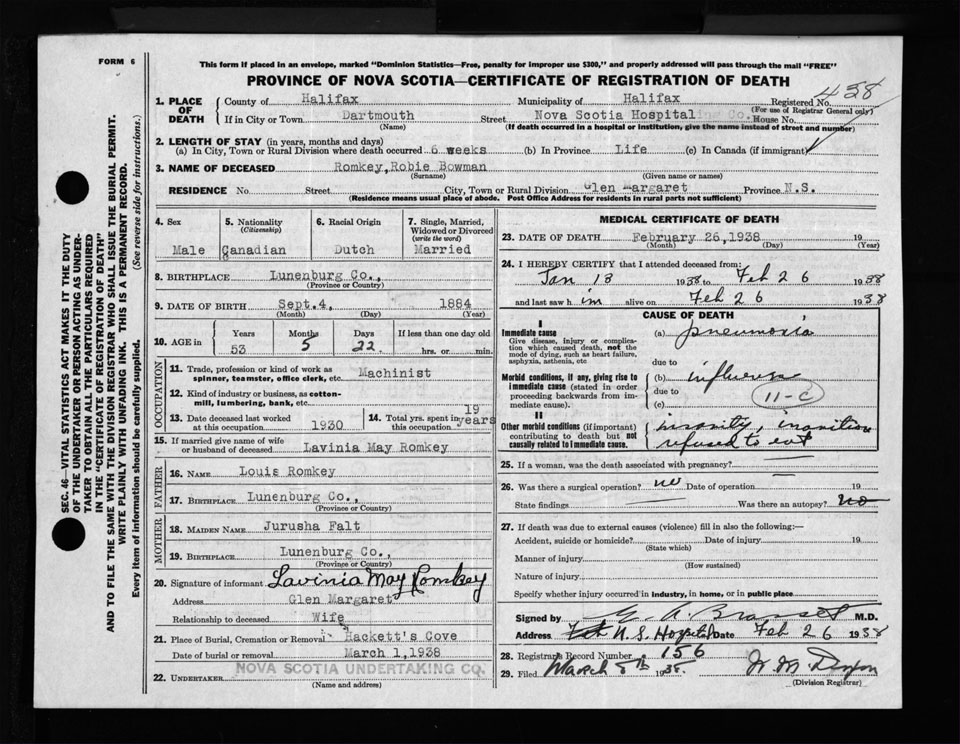 FORM 6
This form if placed in an envelope, marked "Dominion Statistics—Free, penalty for improper use $300," and properly addressed will pass through the mail "FREE"
PROVINCE OF NOVA SCOTIA—CERTIFICATE OF REGISTRATION OF DEATH
438
1. PLACE OF DEATH { County of Halifax Municipality of Halifax Registered No.
(For use of Registrar General only)
If in City or Town Dartmouth Street Nova Scotia Hospital House No.
(Name) (If death occurred in a hospital or institution, give the name instead of street and number)
2. LENGTH OF STAY (in years, months and days)
(a) In City, Town or Rural Division where death occurred 6 weeks (b) In Province Life (c) In Canada (if immigrant)
3. NAME OF DECEASED Romkey, Robie Bowman
(Surname) (Given name or names)
RESIDENCE No. Street City, Town or Rural Division Glen Margaret Province N.S.
(Residence means usual place of abode. Post Office Address for residents in rural parts not sufficient)
4. Sex 5. Nationality (Citizenship) 6. Racial Origin 7. Single, Married, Widowed or Divorced (write the word)
Male Canadian Dutch Married
8. BIRTHPLACE Lunenburg Co.,
(Province or Country)
9. DATE OF BIRTH Sept.4, 1884
(Month) (Day) (Year)
10. AGE in Years Months Days If less than one day old
53 5 22. hrs. or min.
OCCUPATION
11. Trade, profession or kind of work as spinner, teamster, office clerk, etc. Machinist
12. Kind of industry or business, as cotton-mill, lumbering, bank, etc.
13. Date deceased last worked at this occupation 1930 14. Total yrs. spent in this occupation 19 years
15. If married give name of wife or husband of deceased Lavinia May Romkey
FATHER
16. NAME Louis Romkey
17. BIRTHPLACE Lunenburg Co.,
(Province or Country)
MOTHER
18. MAIDEN NAME Jurusha Falt
19. BIRTHPLACE Lunenburg Co.,
(Province or Country)
20. Signature of informant Lavinia May Romkey
Address Glen Margaret
Relationship to deceased Wife
21. Place of Burial, Cremation or Removal Hackett's Cove
Date of burial or removal March 1,1938
22. UNDERTAKER NOVA SCOTIA UNDERTAKING CO.
(Name and Address)
MEDICAL CERTIFICATE OF DEATH
23. DATE OF DEATH February 26,1938 19
(Month) (Day) (Year)
24. I HEREBY CERTIFY that I attended deceased from:
Jan 13 1938 to Feb 26 1938
and last saw him alive on Feb 26 1938
CAUSE OF DEATH
I
Immediate cause (a) pneumonia
Give disease, injury or complication which caused death, not the mode of dying, such as heart failure, asphyxia, asthenia, etc
due to
Morbid conditions, if any, giving rise to immediate cause (stated in order proceeding backwards from immediate cause). (b) influenza
due to
(c) 11-C
II
Other morbid conditions (if important) contributing to death but not causally related to immediate cause. insanity, inanition
refused to eat
25. If a woman, was the death associated with pregnancy?
26. Was there a surgical operation? no Date of operation 19
State findings Was there an autopsy? no
27. If death was due to external causes (violence) fill in also the following:—
Accident, suicide or homicide? Date of injury 19
(State which)
Manner of injury
(How sustained)
Nature of injury
Specify whether injury occurred in industry, in home, or in public place
Signed by M.D.
Address N.S. Hospital Date Feb 26 1938
28. Registrar's Record Number 156
29. Filed March 8th 1938.
(Division Registrar)
SEC. 46—VITAL STATISTICS ACT MAKES IT THE DUTY
OF THE UNDERTAKER OR PERSON ACTING AS UNDER-
TAKER TO OBTAIN ALL THE PARTICULARS REQUIRED
IN THE "CERTIFICATE OF REGISTRATION OF DEATH"
AND TO FILE THE SAME WITH THE DIVISION REGISTRAR WHO SHALL ISSUE THE BURIAL PERMIT.
WRITE PLAINLY WITH UNFADING INK. THIS IS A PERMANENT RECORD.
Every item of information should be carefully supplied. (See reverse side for instructions.)